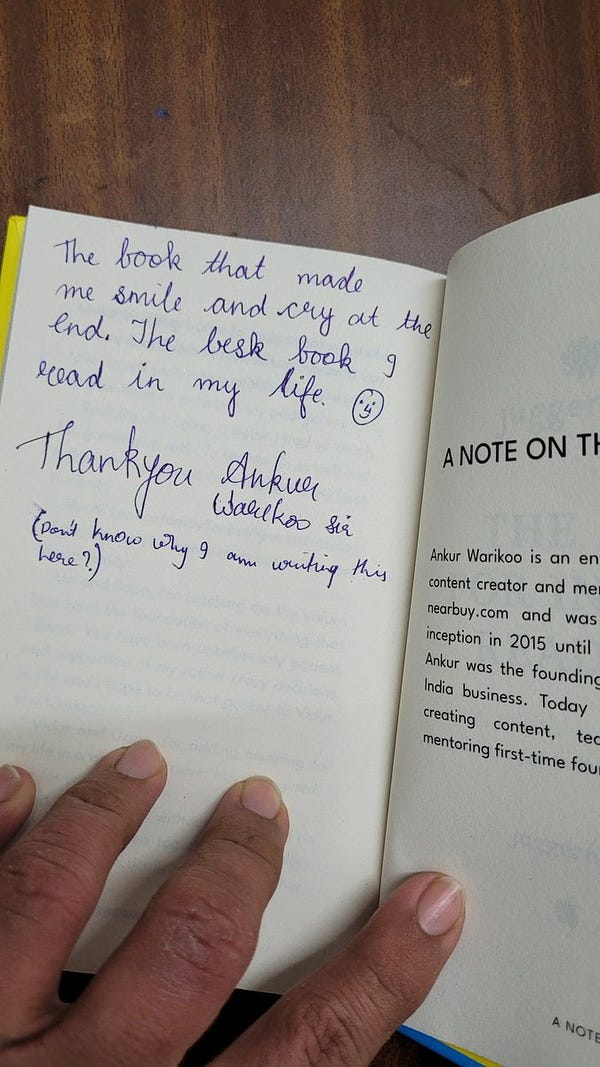 The book that made
me smile and cry at the
end. The besk book I
read in my life.
Thankyou Ankur
Warikoo sir
(Don't know why I am writing this
here?)
A NOTE ON TH
Ankur Warikoo is an en
content creator and me
nearbuy.com and was
inception in 2015 until
Ankur was the founding
India business. Today
creating content, tea
mentoring first-time fou
A NOTE